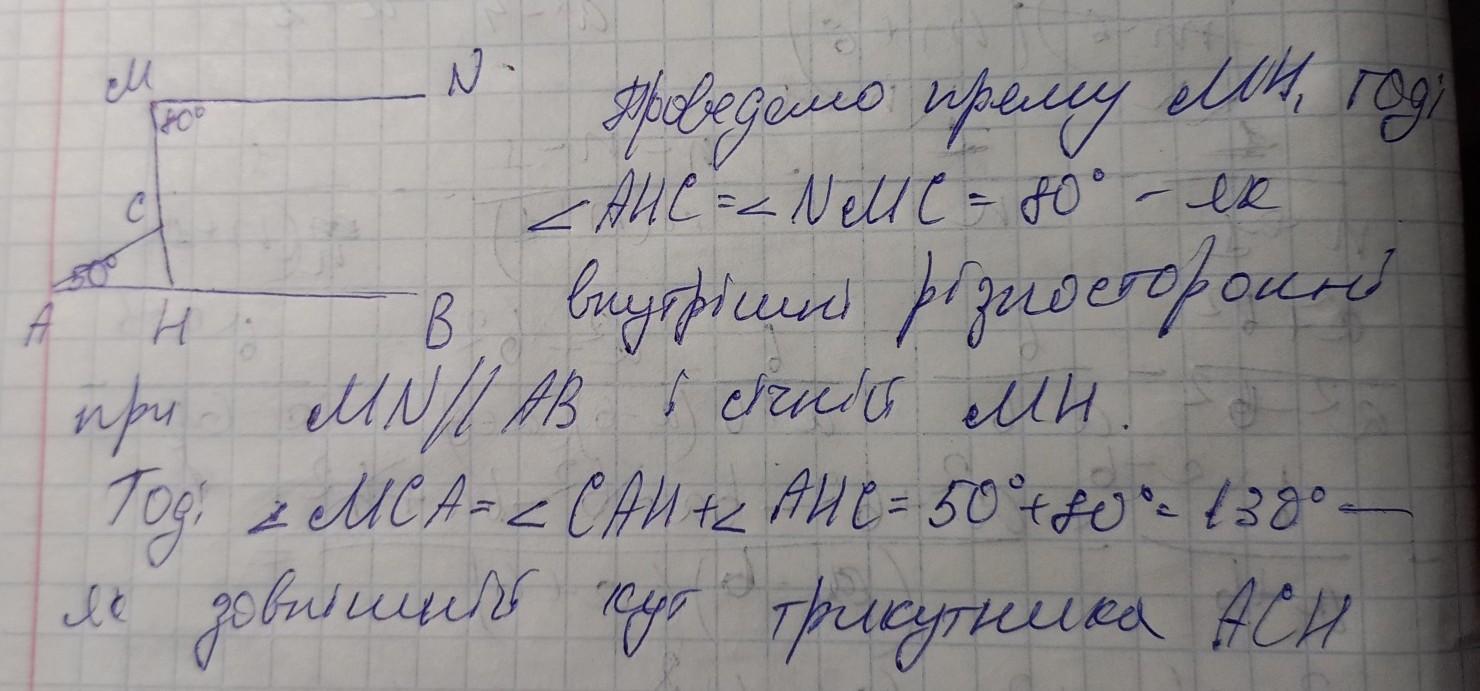 M N
80°
C
50°
A H B
Проведемо пряму MH, тоді
∠AHC=∠NMC=80° - як
внутрішні різносторонні
при MN||AB і січній MH.
Тоді ∠MCA=∠CAH+∠AHC=50°+80°=130° —
як зовнішній кут трикутника ACH